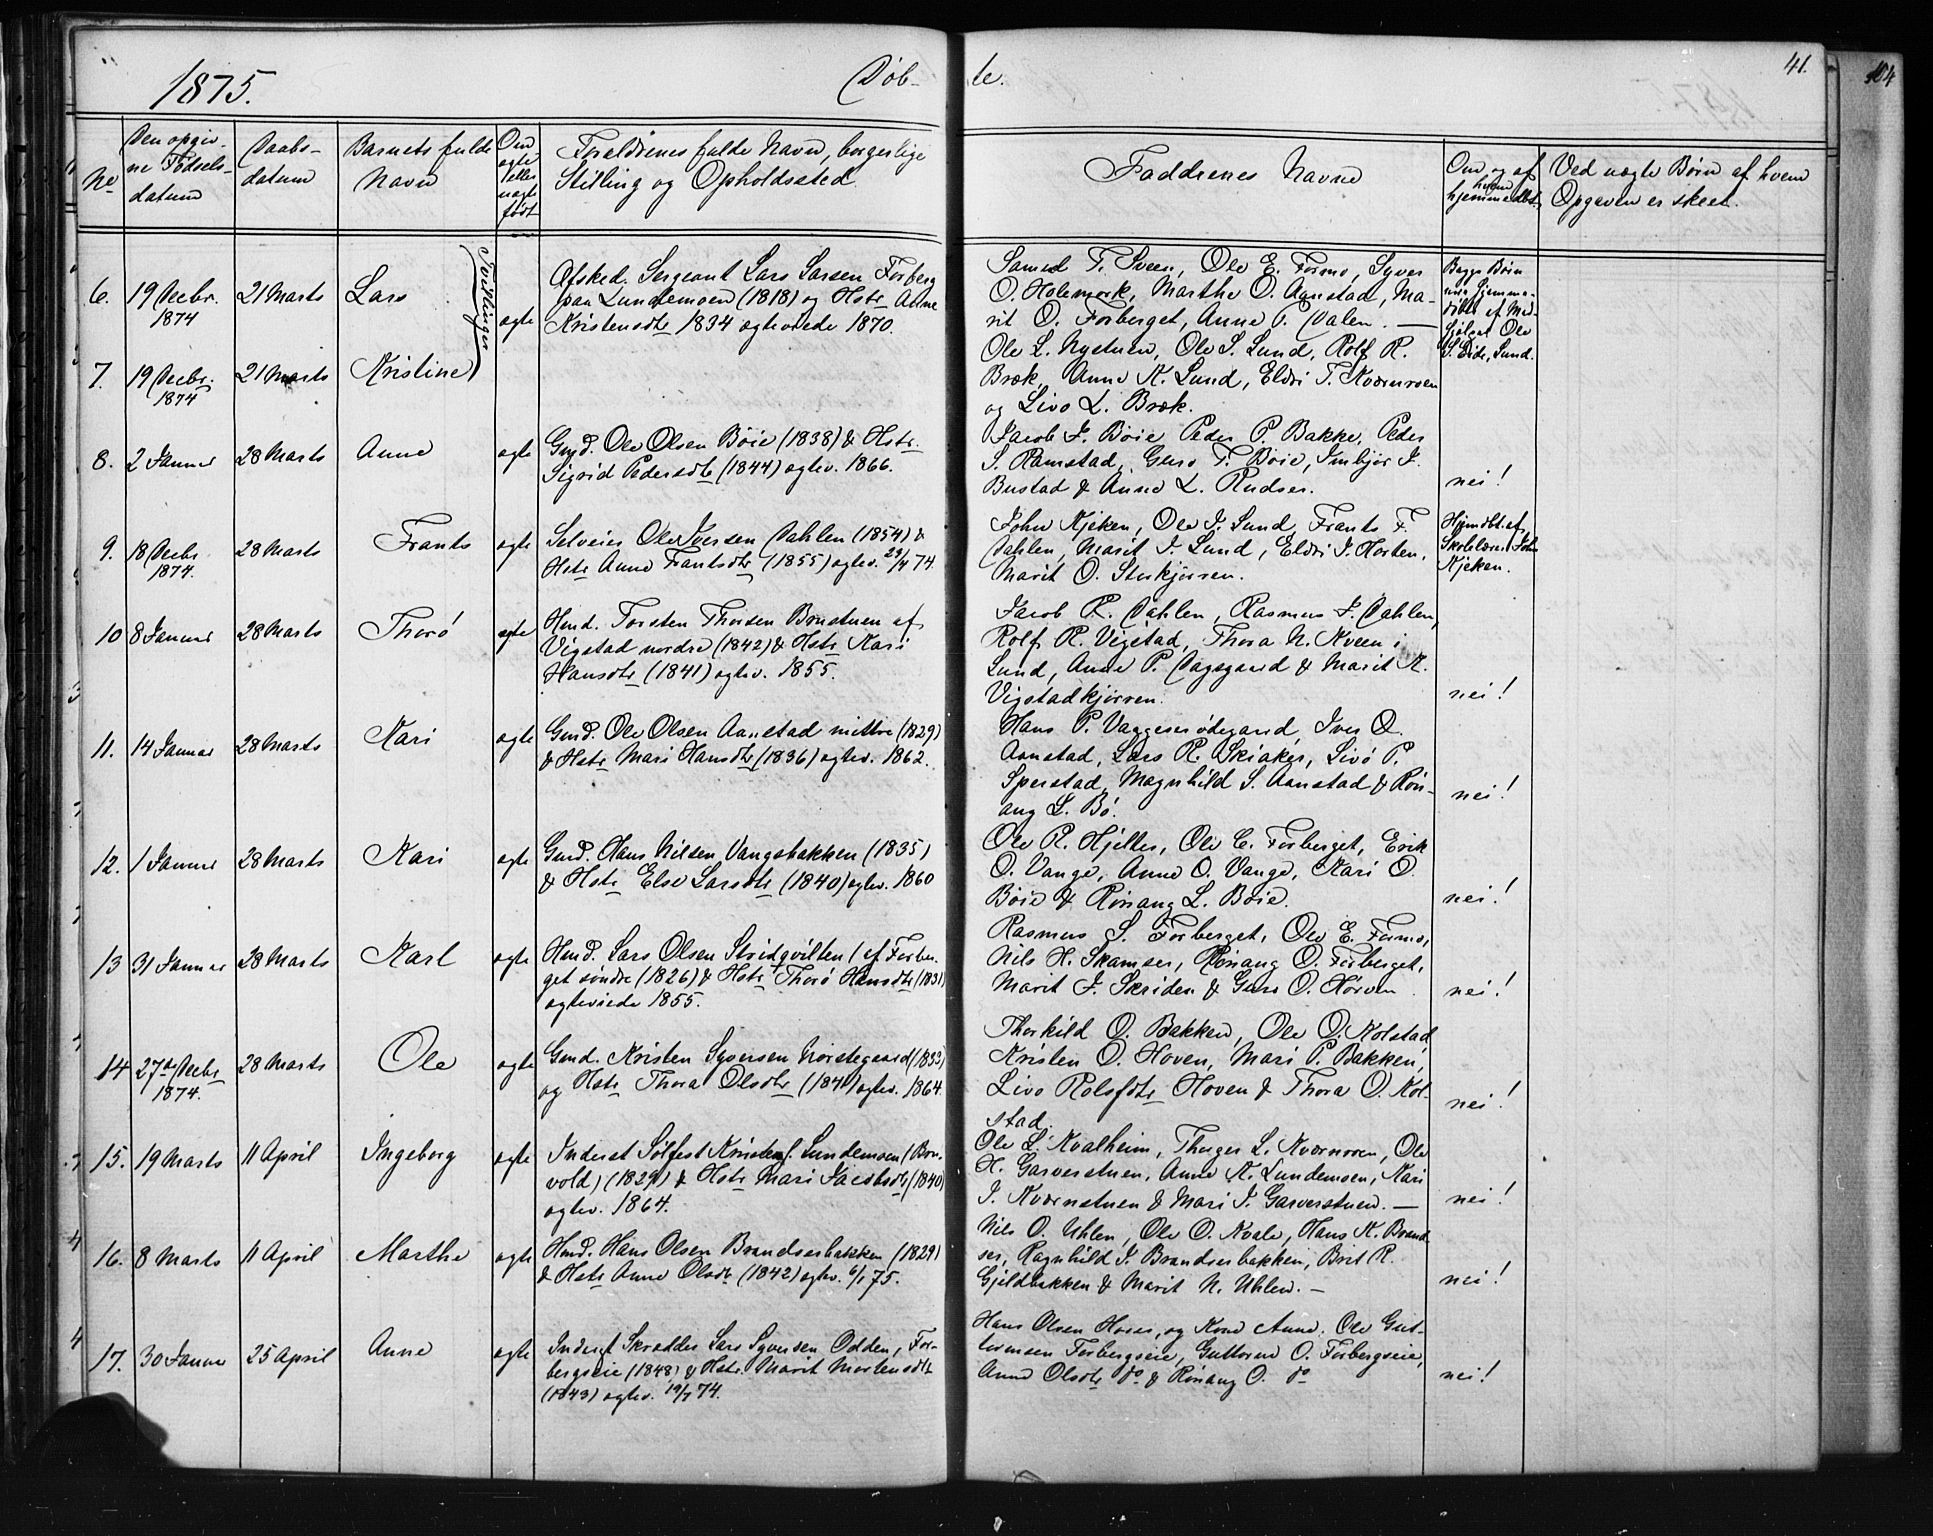 1875.
Døb-
te.
41.
No
Den opgiv-
ne Fødsels-
datum
Daabs-
datum
Barnets fulde
Navn
Om
ægte
eller
uægte
født
Forældrenes fulde Navn, borgerlige
Stilling og Opholdssted.
Faddernes Navne
Om og af
hvem
hjemmedøbt.
Ved uægte Børn af hvem
Opgaven er skeet.
6. 19 Decbr. 1874
21 Marts
Lars
Tvillinger
ægte
Afsked. Sergeant Lars Larsen Forberg
paa Lundemoen (1818) og Hstr. Anne
Kristensdtr 1834 ægteviede 1870.
Samed T. Sveen, Ole E. Formo, Syver
O. Holemork, Marthe O. Aanstad, Ma-
rit O. Forberget, Anne P. Dalen. —
Begge Børn
ere hjemme-
døbt af Med-
hjælper Ole
S. Eide, Lund.
7. 19 Decbr. 1874
21 Marts
Kristine
Ole L. Nystuen, Ole S. Lund, Rolf R.
Bræk, Anne K. Lund, Eldri T. Kværnveen
og Livo L. Bræk.
8. 2 Januar
28 Marts
Anne
ægte
Gmd. Ole Olsen Böie (1838) & Hstr.
Sigrid Pedersdtr (1844) ægtev. 1866.
Jacob J. Böie, Peder P. Bakke, Peder
S. Ramstad, Guro T. Böie, Imbjör J.
Bustad & Anne L. Rudser.
nei!
9. 18 Decbr 1874.
28 Marts
Frants
ægte
Selveier Ole Iversen Dahlen (1854) &
Hstr Anne Frantsdtr (1855) ægtev. 29/4 74.
John Kjeken, Ole J. Lund, Frants F.
Dahlen, Marit J. Lund, Eldri J. Horten,
Marit O. Storkjørren.
Hjemdbt. af
Skolelærer John
Kjeken.
10 8 Januar
28 Marts
Thorö
ægte
Hmd. Torsten Thorsen Brustuen af
Vigstad nordre (1842) & Hstr Kari
Hansdtr (1841) ægtev. 1855.
Jacob R. Dahlen, Rasmus J. Dahlen,
Rolf R. Vigstad, Thora N. Kveen i
Lund, Anne P. Dagsgaard & Marit K.
Vigstadkjørren.
nei!
11. 14 Januar
28 Marts
Kari
ægte
Gmd. Ole Olsen Aanstad mittre (1829)
& Hstr Mari Hansdtr (1836) ægtev. 1862.
Hans P. Vaggesødegaard, Iver O.
Aanstad, Lars R. Skiaker, Livö P.
Sperstad, Magnhild S. Aanstad & Rön-
aug L. Bö.
nei!
12. 1 Januar
28 Marts
Kari
ægte
Gmd. Hans Nilsen Vangsbakken (1835)
& Hstr Else Larsdtr (1840) ægtev. 1860
Ole R. Hjelter, Ole C. Forberget, Erik
O. Vange, Anne O. Vange, Kari O.
Böie & Rönaug L. Böie.
nei!
13 31 Januar
28 Marts
Karl
ægte
Hmd. Lars Olsen Stridqvilten (af Forber-
get søndre (1826) & Hstr Thorö Hansdtr (1831)
ægteviede 1855.
Rasmus S. Forberget, Ole E. Formo,
Nils H. Skamser, Rönaug O. Forberget,
Marit J. Skriden & Guro O. Hörven
nei!
14 27de Decbr 1874.
28 Marts
Ole
ægte
Gmd. Kristen Syversen Norstegaard (1833)
og Hstr Thora Olsdtr (1841) ægtev. 1864.
Thorkild O. Bakken, Ole O. Kolstad
Kristen O. Hoven, Mari P. Bakken,
Livo Rolfsdtr Hoven & Thora O. Kol-
stad.
nei!
15. 19 Marts
11 April
Ingeborg
ægte
Inderst Sølfest Kristens. Lundemoen (Bru-
vold) (1829) & Hstr Mari Jacobsdtr (1840)
ægtev. 1864.
Ole L. Kvalheim, Thorger L. Kværnveen, Ole
H. Garverstuen, Anne K. Lundemoen, Kari
J. Kværnstuen & Mari J. Garverstuen. —
nei!
16. 8 Marts
11 April
Marthe
ægte
Hmd. Hans Olsen Brandserbakken (1829)
& Hstr Anne Olsdtr. (1842) ægtev. 6/1 75.
Nils O. Uhlen, Ole O. Kvale, Hans K. Brand-
ser, Ragnhild J. Brandserbakken, Brit R.
Gjeldbakken & Marit N. Uhlen. —
nei!
17. 30 Januar
25 April
Anne
ægte
Inderst Skrædder Lars Syversen Odden, For-
bergseie (1848) & Hstr. Marit Mortensdtr
(1843) ægtev. 19/7 74.
Hans Olsen Hoser, og Kone Anne. Ole Gut-
tormsen Forbergseie, Guttorm O. Forbergseie,
Anne Olsdtr do & Rönaug O. do
nei!